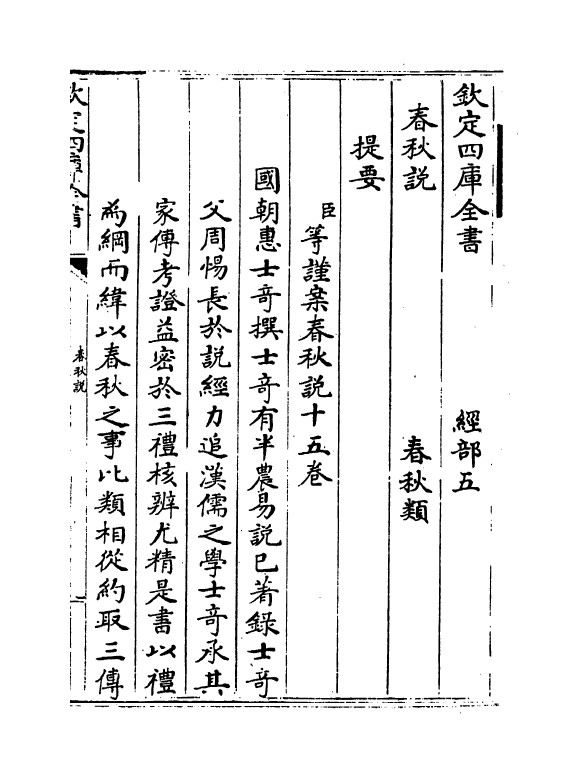 欽定四庫全書　經部五
春秋説　春秋類
提要
臣等謹案春秋説十五卷
國朝惠士奇撰士奇有半農易説已著錄士奇
父周惕長於説經力追漢儒之學士奇承其
家傳考證益密於三禮核辨尤精是書以禮
為綱而緯以春秋之事比類相從約取三傳
欽定四庫全書
春秋説